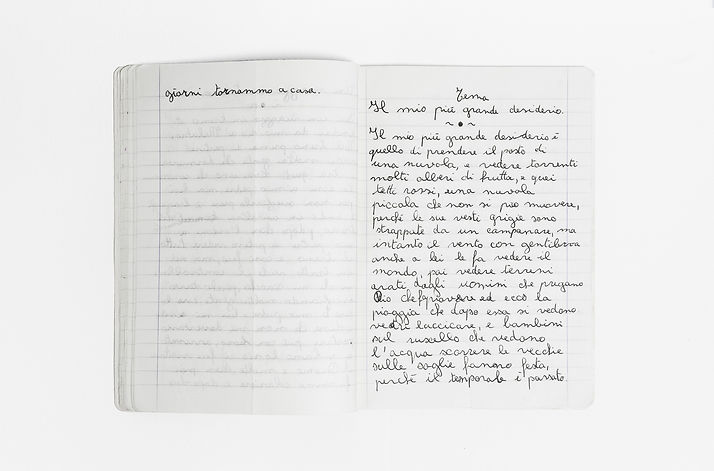 giorni tornammo a casa.
Tema
Il mio più grande desiderio.
~•~
Il mio più grande desiderio è
quello di prendere il posto di
una nuvola, e vedere torrenti
molti alberi di frutta, e quei
tetti rossi, una nuvola
piccola che non si può muovere,
perché le sue vesti grigie sono
strappate da un campanare, ma
intanto il vento con gentilezza
anche a lei le fa vedere il
mondo, poi vedere terreni
arati dagli uomini che pregano
Dio che ed ecco la
pioggia che dopo essa si vedono
vetri luccicare, e bambini
sul ruscello che vedono
l'acqua scorrere le vecchie
sulle soglie fanno festa,
perché il temporale è passato.